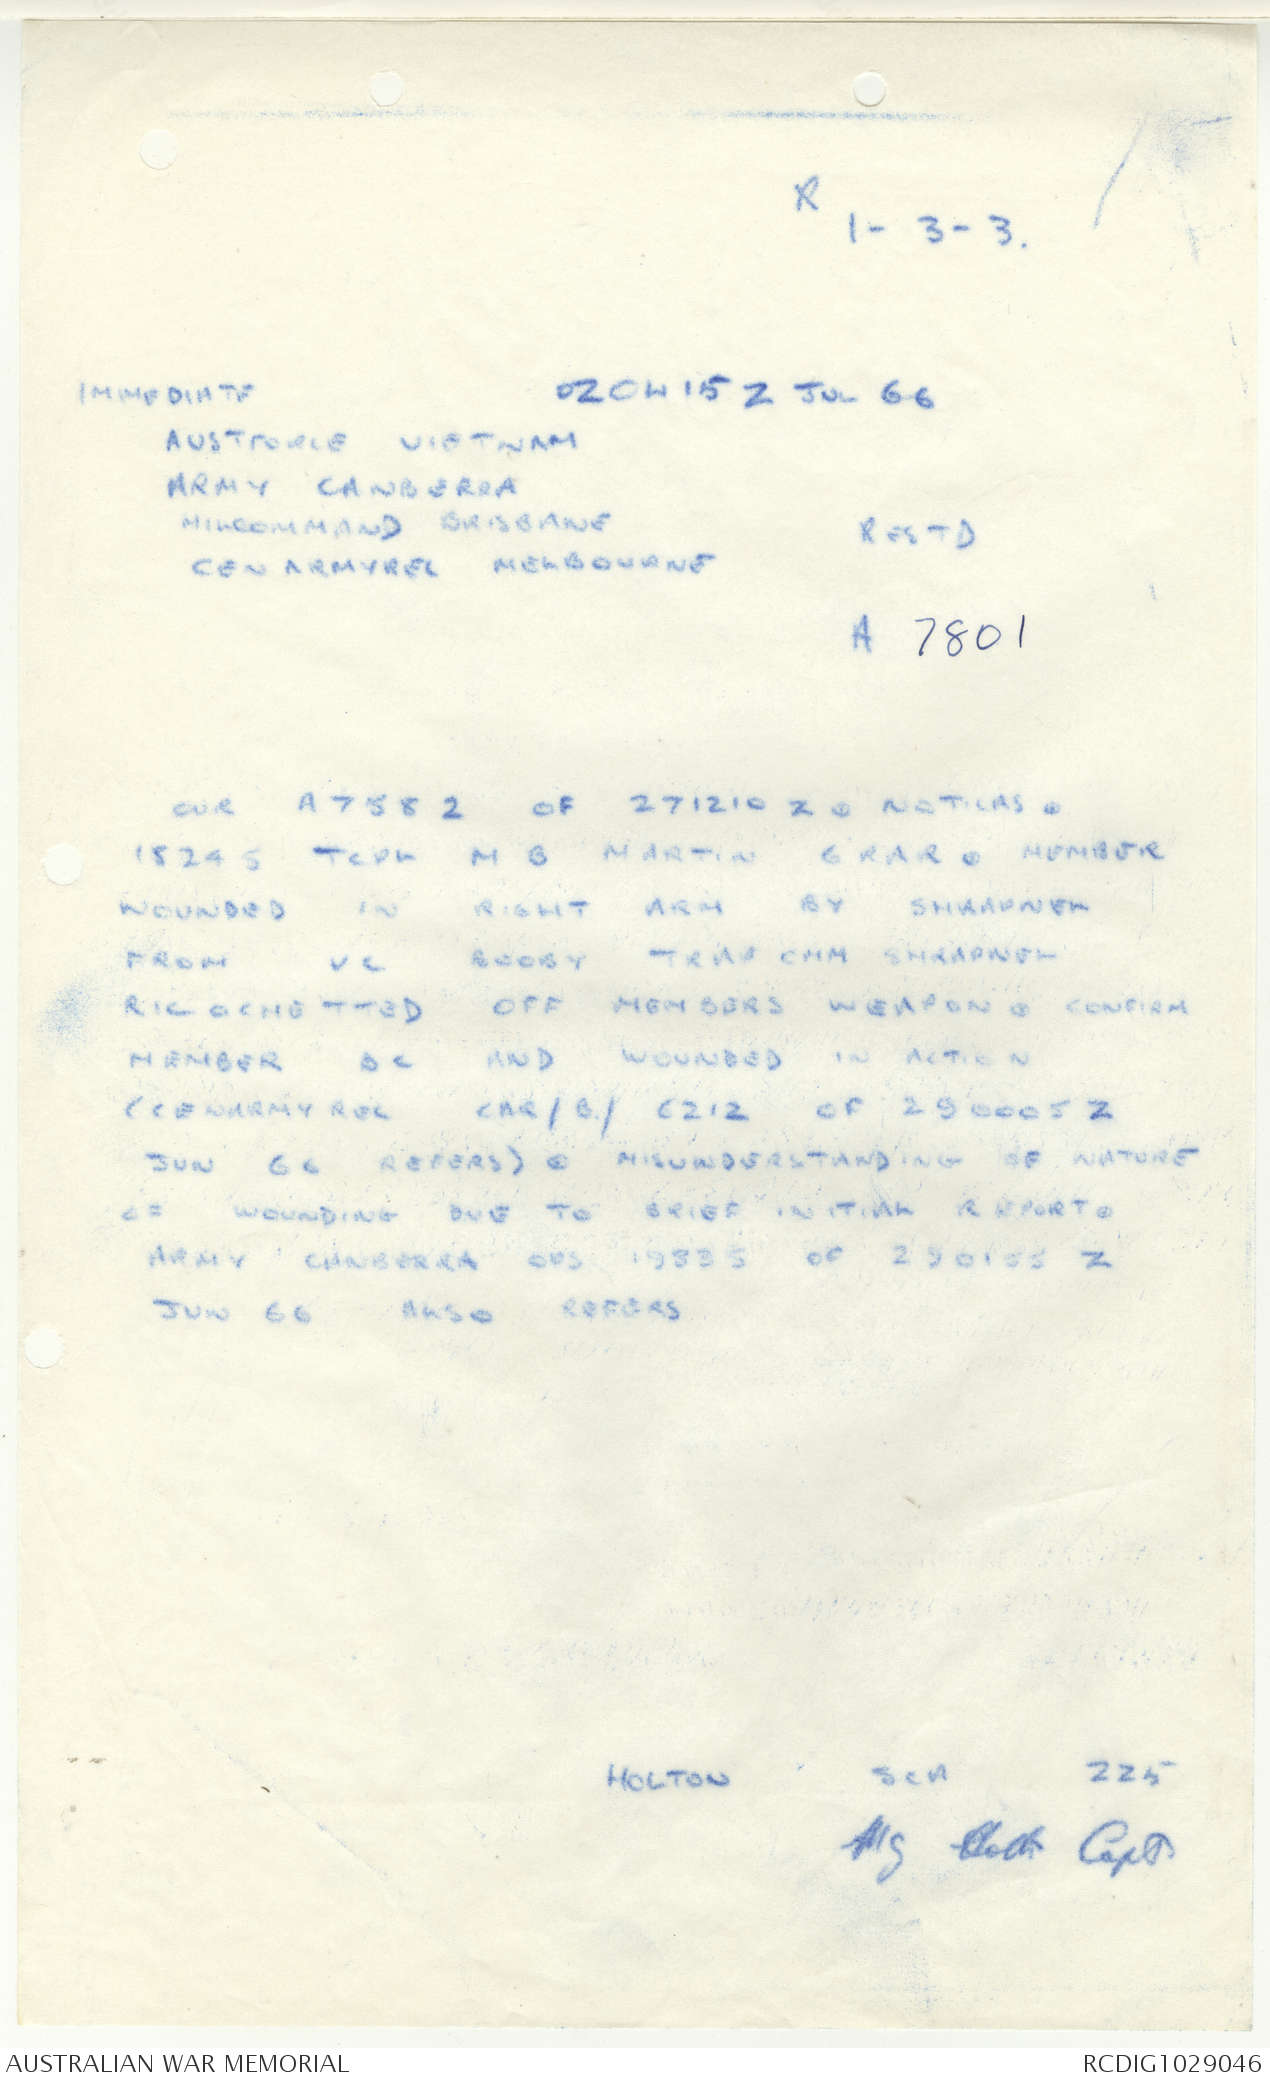 R 1-3-3.
IMMEDIATE 020415Z JUL 66
AUSTFORCE VIETNAM
ARMY CANBERRA
MILCOMMAND BRISBANE RESTD
CENARMYREC MELBOURNE
A 7801
OUR A7582 OF 271210Z ⊙ NOTICAS ⊙
15245 TCPL M B MARTIN 6RAR ⊙ MEMBER
WOUNDED IN RIGHT ARM BY SHRAPNEL
FROM VC BOOBY TRAP CMM SHRAPNEL
RICOCHETTED OFF MEMBERS WEAPON ⊙ CONFIRM
MEMBER BC AND WOUNDED IN ACTION
(CENARMYREC CAR/B/ C212 OF 290005Z
JUN 66 REFERS) ⊙ MISUNDERSTANDING OF NATURE
OF WOUNDING DUE TO BRIEF INITIAL REPORT ⊙
ARMY CANBERRA OPS OF 290155Z
JUN 66 ALSO REFERS
HOLTON 225
Capt
AUSTRALIAN WAR MEMORIAL RCDIG1029046